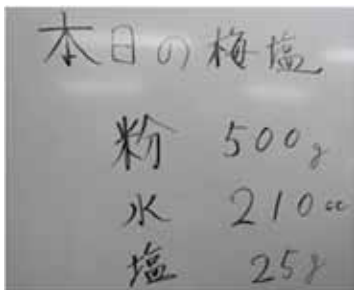 本日の梅塩
粉 500g
水 210cc
塩 25g